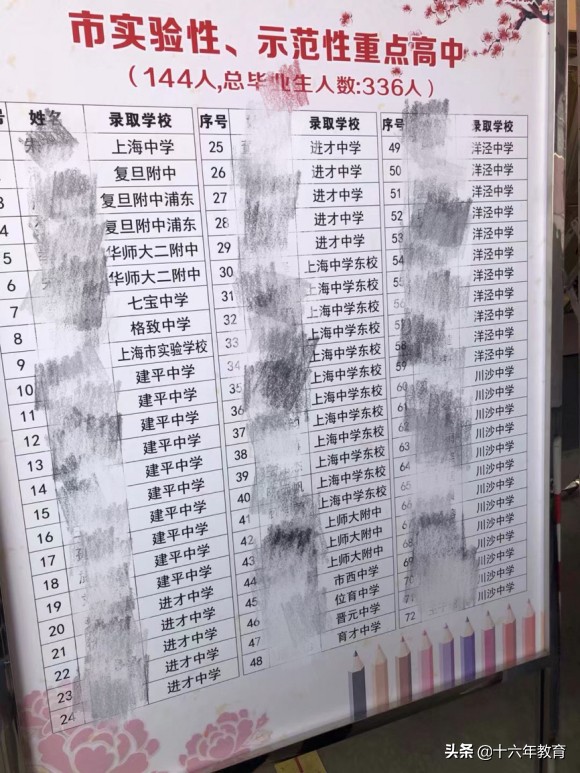 市实验性、示范性重点高中
(144人,总毕业生人数:336人)
号 姓名 录取学校 序号 录取学校 序号 录取学校
上海中学 25 进才中学 49 洋泾中学
复旦附中 26 进才中学 50 洋泾中学
3 复旦附中浦东 27 进才中学 51 洋泾中学
4 复旦附中浦东 28 进才中学 52 洋泾中学
5 华师大二附中 29 进才中学 53 洋泾中学
6 华师大二附中 30 上海中学东校 54 洋泾中学
7 七宝中学 31 上海中学东校 55 洋泾中学
8 格致中学 32 上海中学东校 56 洋泾中学
9 上海市实验学校 33 上海中学东校 57 洋泾中学
10 建平中学 34 上海中学东校 58 洋泾中学
11 建平中学 35 上海中学东校 59 洋泾中学
12 建平中学 36 上海中学东校 60 川沙中学
13 建平中学 37 上海中学东校 61 川沙中学
14 建平中学 38 上海中学东校 62 川沙中学
15 建平中学 39 上海中学东校 63 川沙中学
16 建平中学 40 上海中学东校 64 川沙中学
17 建平中学 41 上海中学东校 65 川沙中学
18 建平中学 42 上师大附中 66 川沙中学
19 建平中学 43 上师大附中 67 川沙中学
20 进才中学 44 上师大附中 68 川沙中学
21 进才中学 45 市西中学 69 川沙中学
22 进才中学 46 位育中学 70 川沙中学
23 进才中学 47 晋元中学 71 川沙中学
24 进才中学 48 育才中学 72 川沙中学
头条 @十六年教育